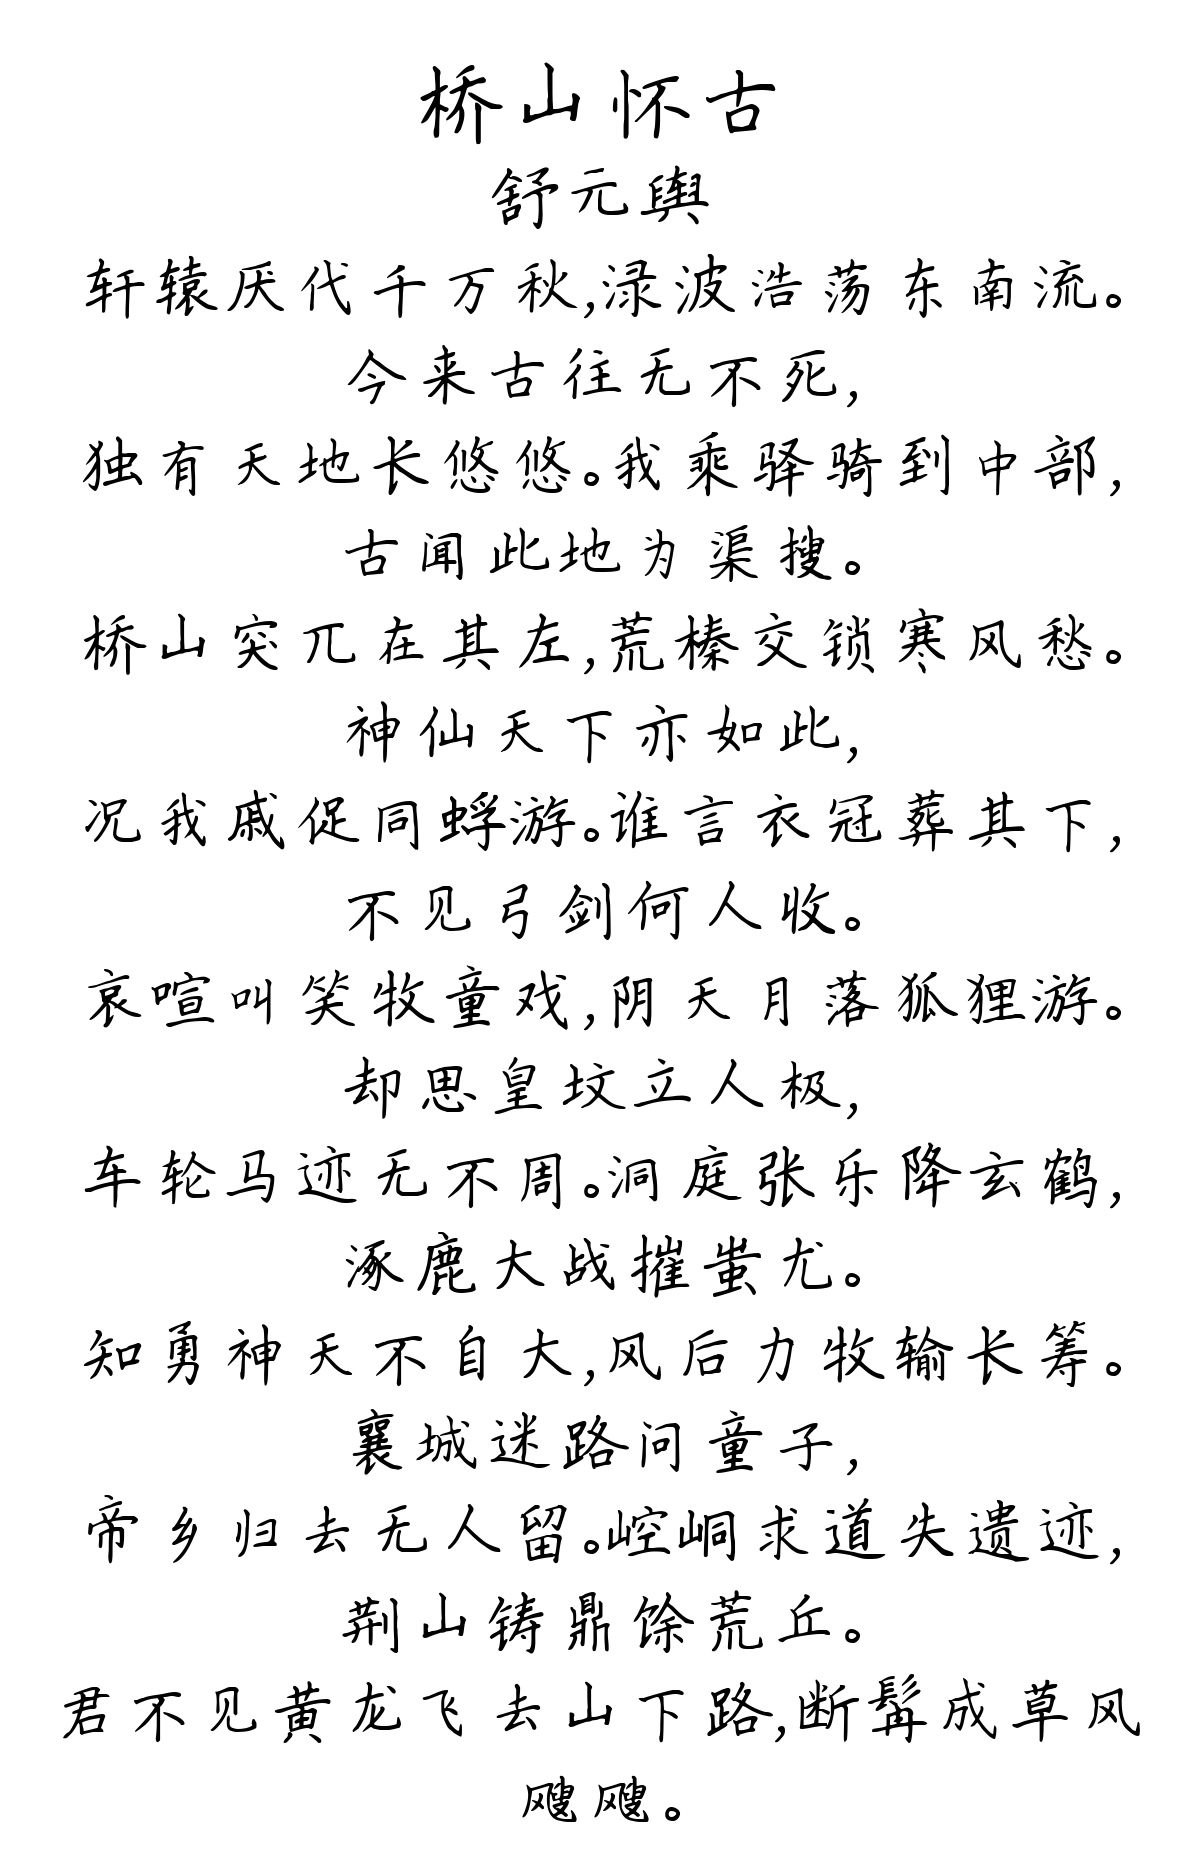 桥山怀古
舒元舆
轩辕厌代千万秋,渌波浩荡东南流。
今来古往无不死,
独有天地长悠悠。我乘驿骑到中部,
古闻此地为渠搜。
桥山突兀在其左,荒榛交锁寒风愁。
神仙天下亦如此,
况我戚促同蜉游。谁言衣冠葬其下,
不见弓剑何人收。
哀喧叫笑牧童戏,阴天月落狐狸游。
却思皇坟立人极,
车轮马迹无不周。洞庭张乐降玄鹤,
涿鹿大战摧蚩尤。
知勇神天不自大,风后力牧输长筹。
襄城迷路问童子,
帝乡归去无人留。崆峒求道失遗迹,
荆山铸鼎馀荒丘。
君不见黄龙飞去山下路,断髯成草风
飕飕。